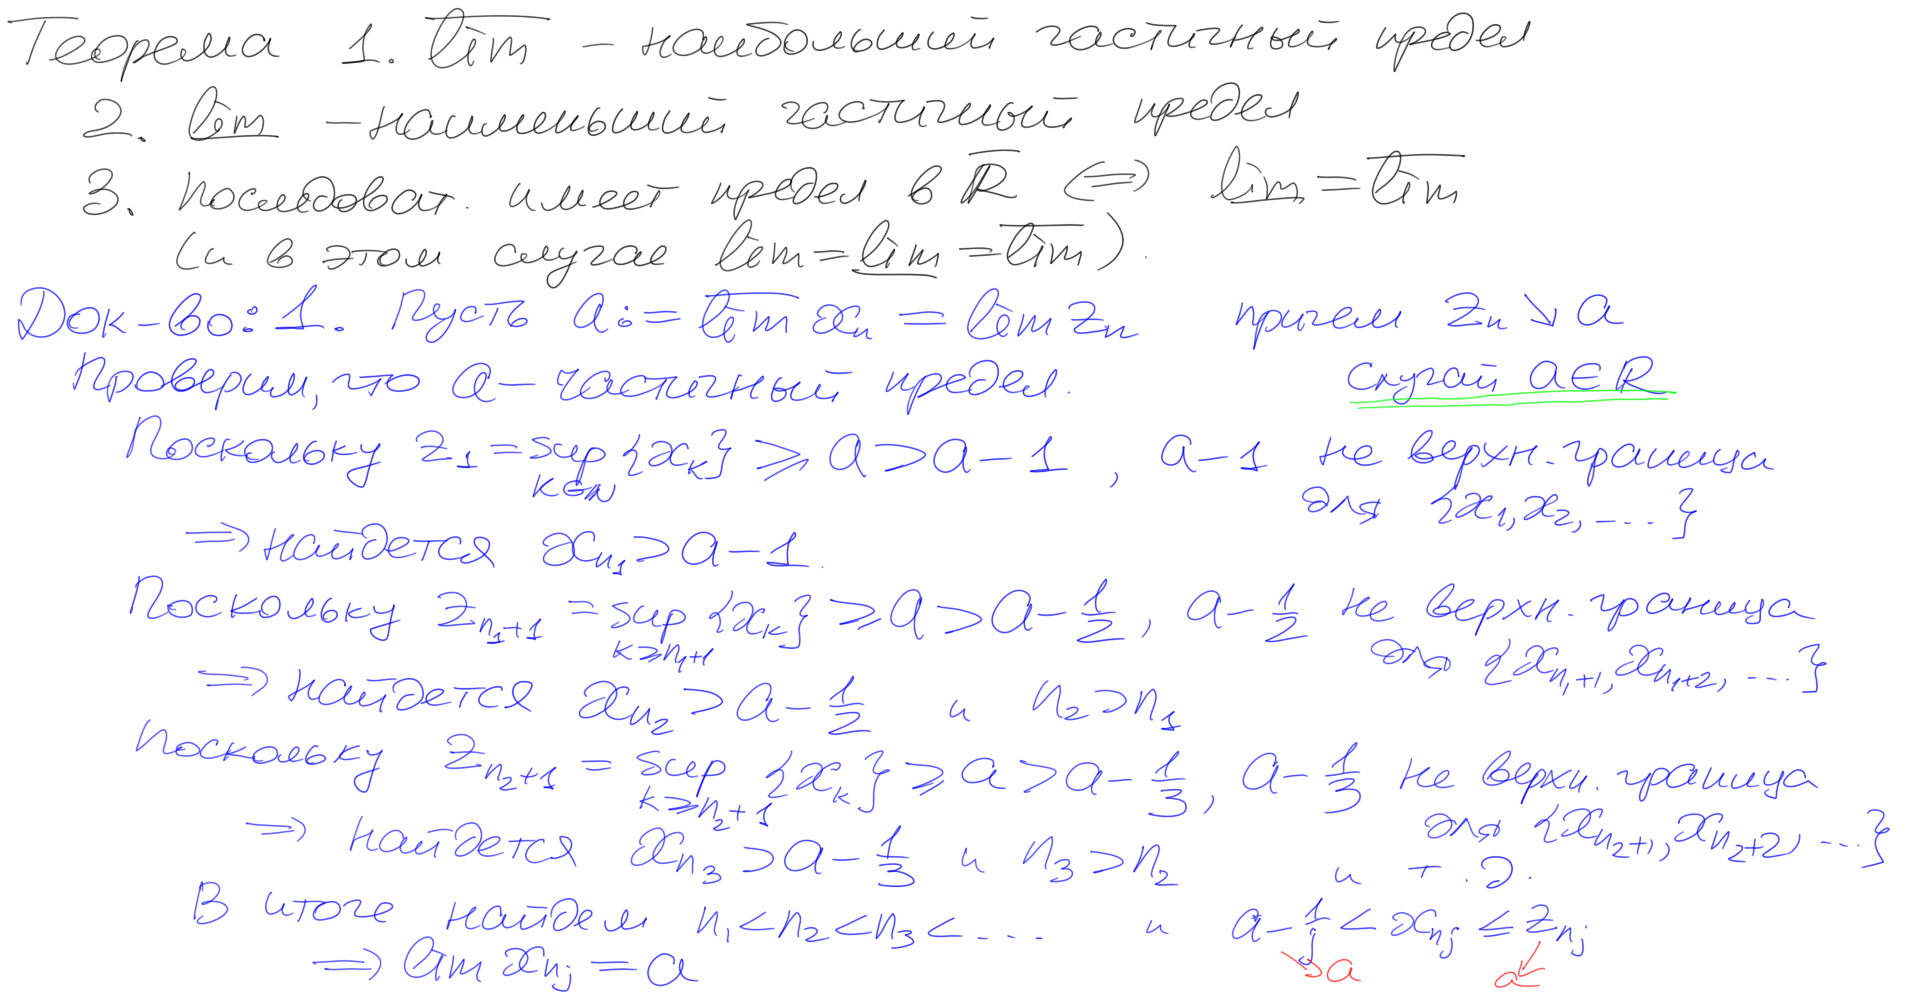 Теорема 1. $\overline{\lim}$ – наибольший частичный предел
2. $\underline{\lim}$ – наименьший частичный предел
3. Последоват. имеет предел в $\overline{\mathbb{R}}$ ⟺ $\underline{\lim} = \overline{\lim}$
(и в этом случае $\lim = \underline{\lim} = \overline{\lim}$).
Док-во: 1. Пусть $a := \overline{\lim} x_n = \lim z_n$ причем $z_n \searrow a$
Проверим, что a – частичный предел. случай $a \in \mathbb{R}$
Поскольку $z_1 = \sup_{k \in \mathbb{N}} \{x_k\} \geqslant a > a - 1$, $a - 1$ не верхн. граница
для $\{x_1, x_2, \ldots\}$
⟹ найдется $x_{n_1} > a - 1$.
Поскольку $z_{n_1+1} = \sup_{k \geqslant n_1+1} \{x_k\} \geqslant a > a - \frac{1}{2}$, $a - \frac{1}{2}$ не верхн. граница
для $\{x_{n_1+1}, x_{n_1+2}, \ldots\}$
⟹ найдется $x_{n_2} > a - \frac{1}{2}$ и $n_2 > n_1$
Поскольку $z_{n_2+1} = \sup_{k \geqslant n_2+1} \{x_k\} \geqslant a > a - \frac{1}{3}$, $a - \frac{1}{3}$ не верхн. граница
для $\{x_{n_2+1}, x_{n_2+2}, \ldots\}$
⟹ найдется $x_{n_3} > a - \frac{1}{3}$ и $n_3 > n_2$ и т.д.
В итоге найдем $n_1 < n_2 < n_3 < \ldots$ и $a - \frac{1}{j} < x_{n_j} \leqslant z_{n_j}$
⟹ $\lim x_{n_j} = a$ ↘ a a ↙